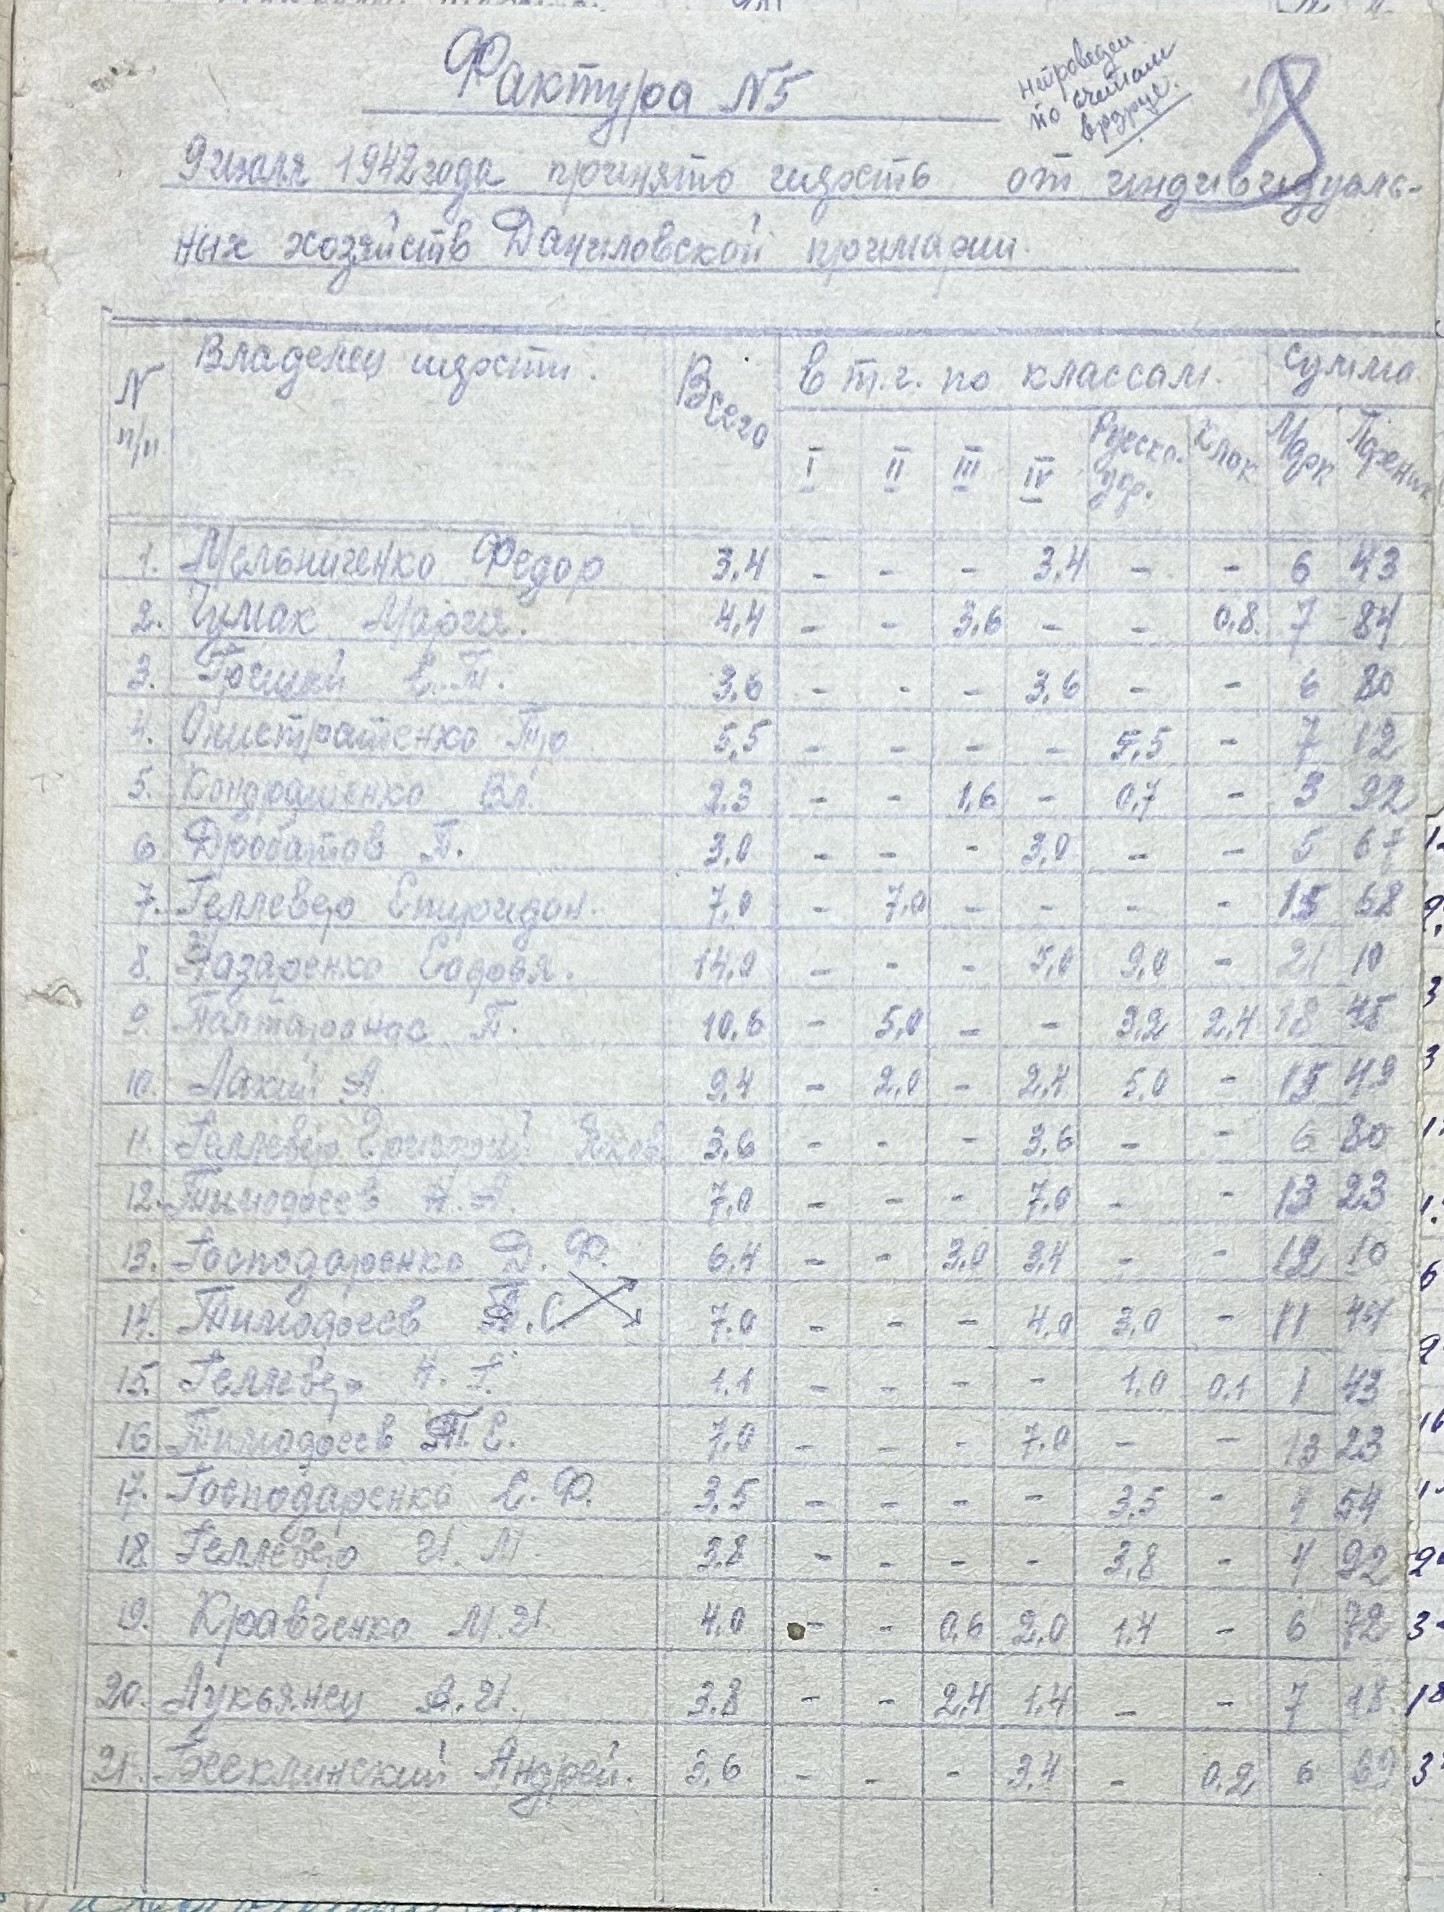 Фактура N5
8
9 июля 1942 года принято шерсть от индивидуаль-
ных хозяйств Даниловской примарии.
N п/п Владелец шерсти. Всего в т.ч. по классам. Сумма
I II III IV Русско. Клок Марк Пфениг
1. Мельниченко Федор 3,4 - - - 3,4 - - 6 43
2. Чумак Мария. 4,4 - - 3,6 - - 0,8 7 84
3. Е. Т. 3,6 - - - 3,6 - - 6 80
4. Онистратенко 5,5 - - - - 5,5 - 7 12
5. Кондратенко Вл. 2,3 - - 1,6 - 0,7 - 3 92
6 П. 3,0 - - - 3,0 - - 5 67
7. Геллеверо Спиридон. 7,0 - 7,0 - - - - 15 68
8. Назаренко 14,0 - - - 5,0 9,0 - 21 10
9. П. 10,6 - 5,0 - - 3,2 2,4 18 45
10. Лахий А. 9,4 - 2,0 - 2,4 5,0 - 15 49
11. Геллеверо Григорий 3,6 - - - 3,6 - - 6 80
12. Тимофеев А. А. 7,0 - - - 7,0 - - 13 23
13. Господаренко Д. Ф. 6,4 - - 3,0 3,4 - - 12 10
14. Тимофеев С. 7,0 - - - 4,0 3,0 - 11 44
15. Геллеверо Н. Г. 1,1 - - - - 1,0 0,1 1 43
16. Тимофеев Т. Е. 7,0 - - - 7,0 - - 13 23
17. Господаренко С. Ф. 3,5 - - - - 3,5 - 4 54
18. Геллеверо И. М. 3,8 - - - - 3,8 - 4 92
19. Кравченко М. И. 4,0 - - 0,6 2,0 1,4 - 6 72
20. Лукьянец И. 3,8 - - 2,4 1,4 - - 7 18
21. Андрей. 3,6 - - - 3,4 - 0,2 6